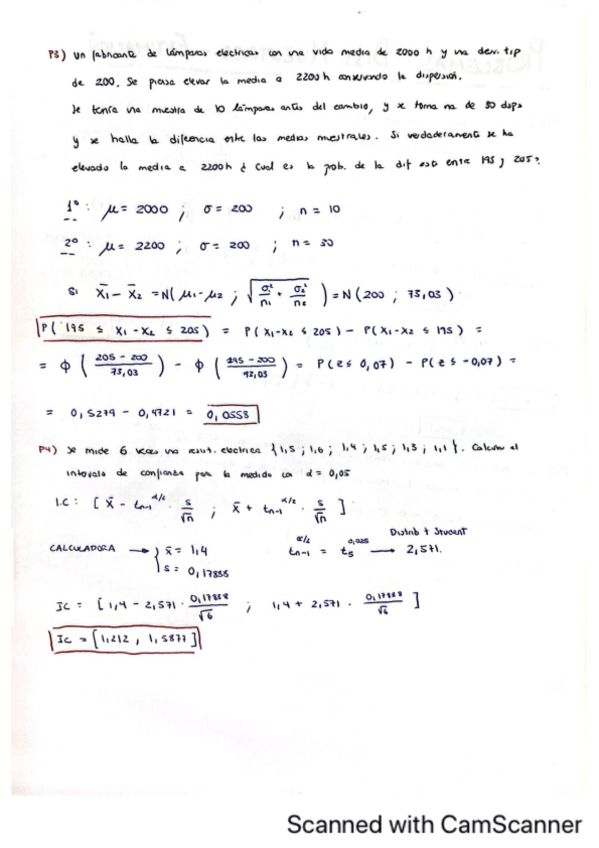 P3) Un fabricante de lámparas electricas con una vida media de 2000 h y una desv. tip
de 200. Se piensa elevar la media a 2200h conservando la dispersión.
Se tenía una muestra de 10 lámparas antes del cambio, y se toma una de 30 dsps
y se halla la diferencia entre las medias muestrales. Si verdaderamente se ha
elevado la media a 2200h ¿ Cual es la prob. de la dif está entre 195 y 205?
1º : μ = 2000 ; σ = 200 ; n = 10
2º : μ = 2200 ; σ = 200 ; n = 30
Si X̄1 - X̄2 = N( μ1-μ2 ; √(σ1²/n1 + σ2²/n2) ) = N (200 ; 73,03)
P( 195 ≤ X1 - X2 ≤ 205) = P( X1-X2 ≤ 205) - P( X1-X2 ≤ 195) =
= Φ ( (205 - 200)/73,03 ) - Φ ( (195 - 200)/93,03 ) = P(z ≤ 0,07) - P(z ≤ -0,07) =
= 0,5279 - 0,4721 = 0,0553
P4) Se mide 6 veces una resist. electrica {1,5 ; 1,6 ; 1,4 ; 1,5 ; 1,3 ; 1,1 }. Calcular el
intervalo de confianza para la medida con α = 0,05
I.C : [ X̄ - tn-1^α/2 · s/√n ; X̄ + tn-1^α/2 · s/√n ]
CALCULADORA → { X̄ = 1,4 tn-1^α/2 = t5^0,025 → Distrib t Student 2,571.
s = 0,17888
IC = [ 1,4 - 2,571 · 0,17888/√6 ; 1,4 + 2,571 · 0,17888/√6 ]
IC = [1,212 , 1,5877]
Scanned with CamScanner